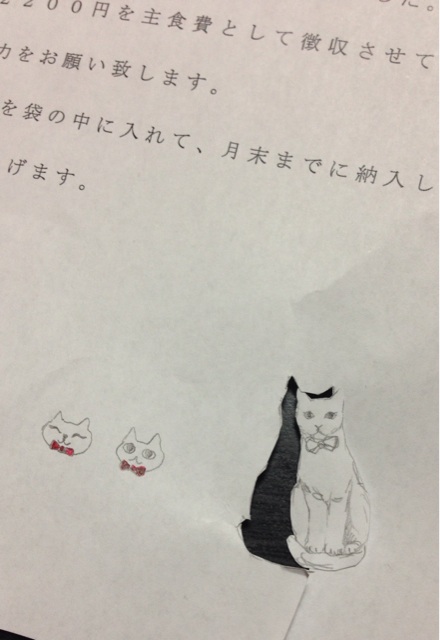 200円を主食費として徴収させて
をお願い致します。
を袋の中に入れて、月末までに納入し
げます。